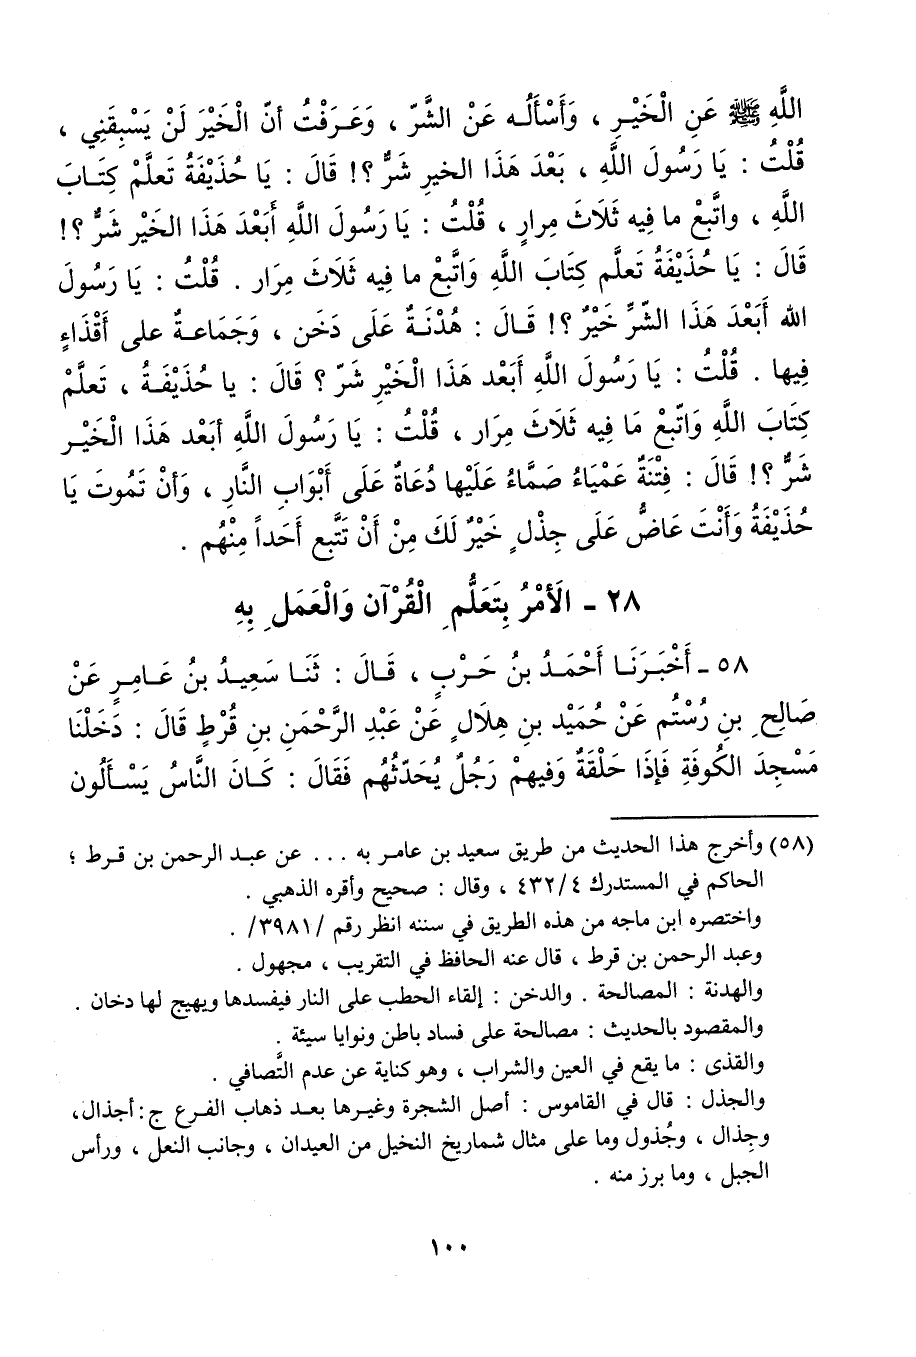 اللَّهِ ﷺ عَنِ الْخَيْرِ ، وَأَسْأَلُه عَنْ الشَّرّ ، وَعَرَفْتُ أنّ الْخَيْرَ لَنْ يَسْبِقَنِي ،
قُلْتُ : يَا رَسُولَ اللَّهِ ، بَعْدَ هَذَا الخيرِ شَرٌّ ؟! قَالَ : يَا حُذَيْفَةُ تَعلَّمْ كِتَابَ
اللَّهِ ، واتَّبِعْ ما فِيه ثَلَاثَ مِرارٍ ، قُلْتُ : يَا رَسُولَ اللَّهِ أَبَعْدَ هَذَا الخَيْرِ شَرٌّ ؟!
قَالَ : يَا حُذَيْفَةُ تَعلَّم كِتَابَ اللَّهِ وَاتَّبِعْ ما فِيه ثَلَاثَ مِرَار . قُلْتُ : يَا رَسُولَ
الله أَبَعْدَ هَذَا الشّرِّ خَيْرٌ ؟! قَالَ : هُدْنَةٌ عَلَى دَخَن ، وَجَمَاعةٌ على أَقْذَاءٍ
فِيها . قُلْتُ : يَا رَسُولَ اللَّهِ أَبَعْد هَذَا الْخَيْرِ شَرّ ؟ قَالَ : يا حُذَيْفَةُ ، تَعلَّمْ
كِتَابَ اللَّهِ وَاتَّبِعْ مَا فِيه ثَلَاثَ مِرَار ، قُلْتُ : يَا رَسُولَ اللَّهِ أبَعْد هَذَا الْخَيْرِ
شَرٌّ ؟! قَالَ : فِتْنَةٌ عَمْيَاءُ صَمَّاءُ عَلَيْها دُعَاةٌ عَلَى أَبْوَابِ النَّارِ ، وَأنْ تَمُوتَ يَا
حُذَيْفَةُ وَأَنْتَ عَاضٌّ عَلَى جِذْلٍ خَيْرٌ لَكَ مِنْ أَنْ تَتَّبِع أَحَداً مِنْهُم .
٢٨ - الَأمْرُ بِتَعَلُّمِ الْقُرْآن وَالْعَمَلِ بِهِ
٥٨ - أَخْبَرَنَا أَحْمَدُ بنُ حَرْبٍ ، قَالَ : ثَنَا سَعِيدُ بنُ عَامِرٍ عَنْ
صَالِحِ بنِ رُسْتُم عَنْ حُمَيْدِ بنِ هِلَالٍ عَنْ عَبْدِ الرَّحْمَنِ بنِ قُرْطٍ قَالَ : دَخَلْنَا
مَسْجِدَ الكُوفَةِ فَإذَا حَلْقَةٌ وَفِيهمْ رَجُلٌ يُحَدِّثُهُم فَقَالَ : كَانَ النَّاسُ يَسْأَلُون
(٥٨) وأخرج هذا الحديث من طريق سعيد بن عامر به . . . عن عبد الرحمن بن قرط ؛
الحاكم في المستدرك ٤/ ٤٣٢ ، وقال : صحيح وأقره الذهبي .
واختصره ابن ماجه من هذه الطريق في سننه انظر رقم /٣٩٨١/ .
وعبد الرحمن بن قرط ، قال عنه الحافظ في التقريب ، مجهول .
والهدنة : المصالحة . والدخن : إلقاء الحطب على النار فيفسدها ويهيج لها دخان .
والمقصود بالحديث : مصالحة على فساد باطن ونوايا سيئة .
والقذى : ما يقع في العين والشراب ، وهو كناية عن عدم التَّصافي .
والجذل : قال في القاموس : أصل الشجرة وغيرها بعد ذهاب الفرع ج : أجذال،
وجِذال ، وجُذول وما على مثال شماريخ النخيل من العيدان ، وجانب النعل ، ورأس
الجبل ، وما برز منه .
١٠٠